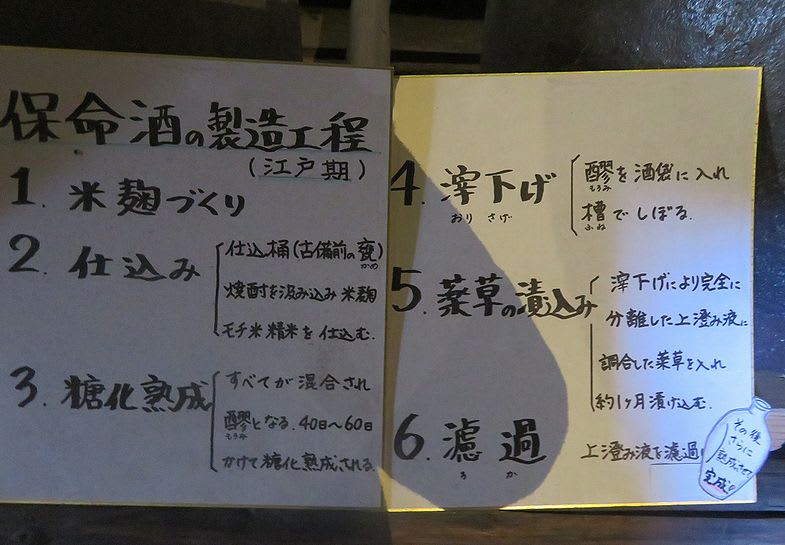 保命酒の製造工程
(江戸期)
1. 米麹づくり
2. 仕込み
仕込桶(古備前の甕)
かめ
焼酎を汲み込み 米麹
モチ米 精米を 仕込む.
3. 糖化熟成
すべてが 混合され
醪となる. 40日〜60日
もろみ
かけて 糖化熟成される.
4. 滓下げ
おり さげ
醪を 酒袋に 入れ
もろみ
槽でしぼる.
ふね
5. 薬草の漬込み
滓下げにより完全に
分離した上澄み液に
調合した薬草を入れ
約1ヶ月 漬け込む.
6. 濾過
ろ か
上澄み液を濾過
その後
さらに
熟成させて
完成!!